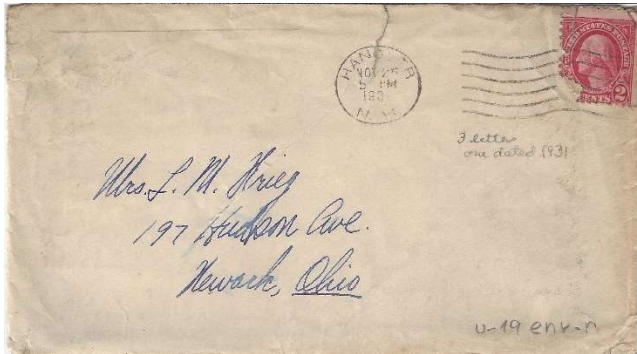 HANOVER
NOV 25
5 PM
193
N.H.
UNITED STATES POSTAGE
CENTS 2
3 letters
one dated 1931
Mrs. L. M. Krieg
197 Hudson Ave.
Newark, Ohio
u-19 env-n